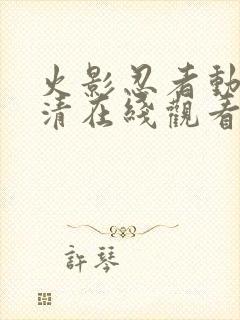 火影忍者動
清在綫觀看
許琴